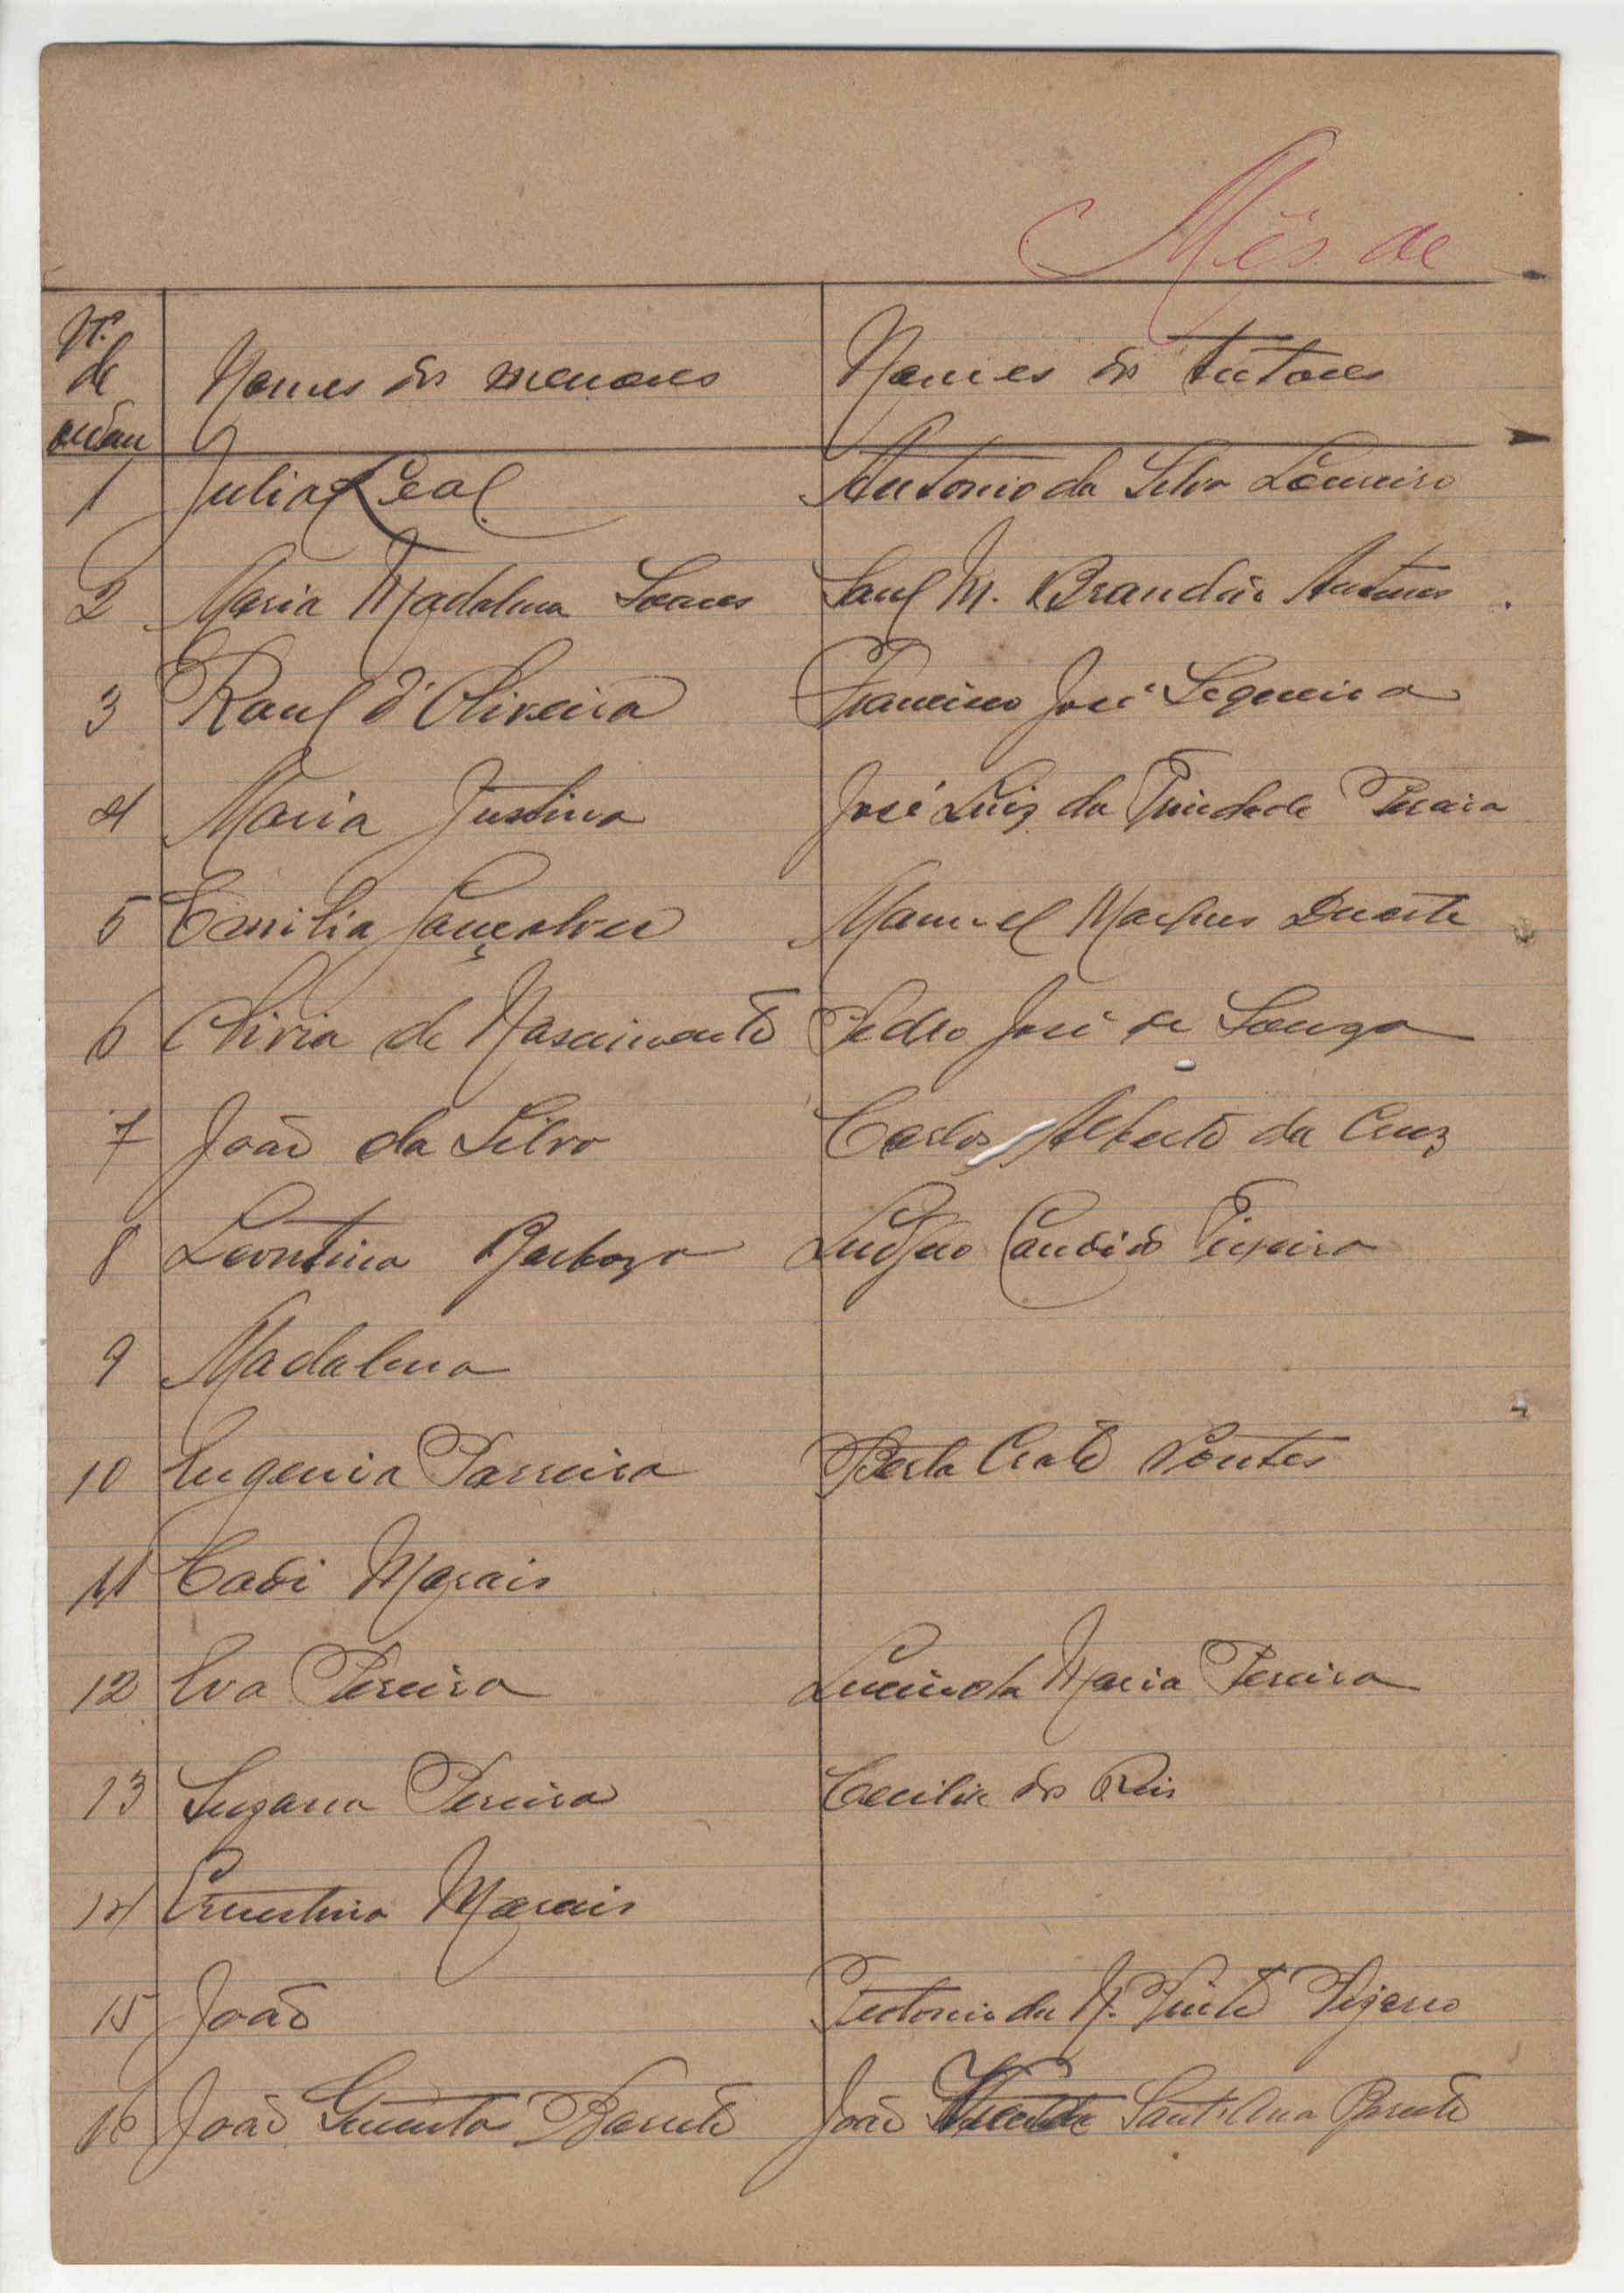 Mês de
Nº
de
ordem
Nomes dos menores
Nomes dos tutores
1 Julia Leal Antonio da Silva Loureiro
2 Maria Madalena Soares Saul M. Brandão Antunes
3 Raul d'Oliveira Francisco José Sequeira
4 Maria Justina José Luiz da Trindade Pereira
5 Emilia Gonçalves Manuel Duarte
6 Olivia de Nascimento Pedro José de Souza
7 João da Silva Carlos Alberto da Cruz
8 Leontina Barboza Candido Teixeira
9 Madalena
10 Eugenia Parreira Berta Pontes
11 Cadi Morais
12 Eva Pereira Lucinda Maria Pereira
13 Suzana Pereira Cecilia dos Reis
14 Ernestina Morais
15 João Teotonio da N. Pinto
16 João Barreto João Sant'Ana Barreto